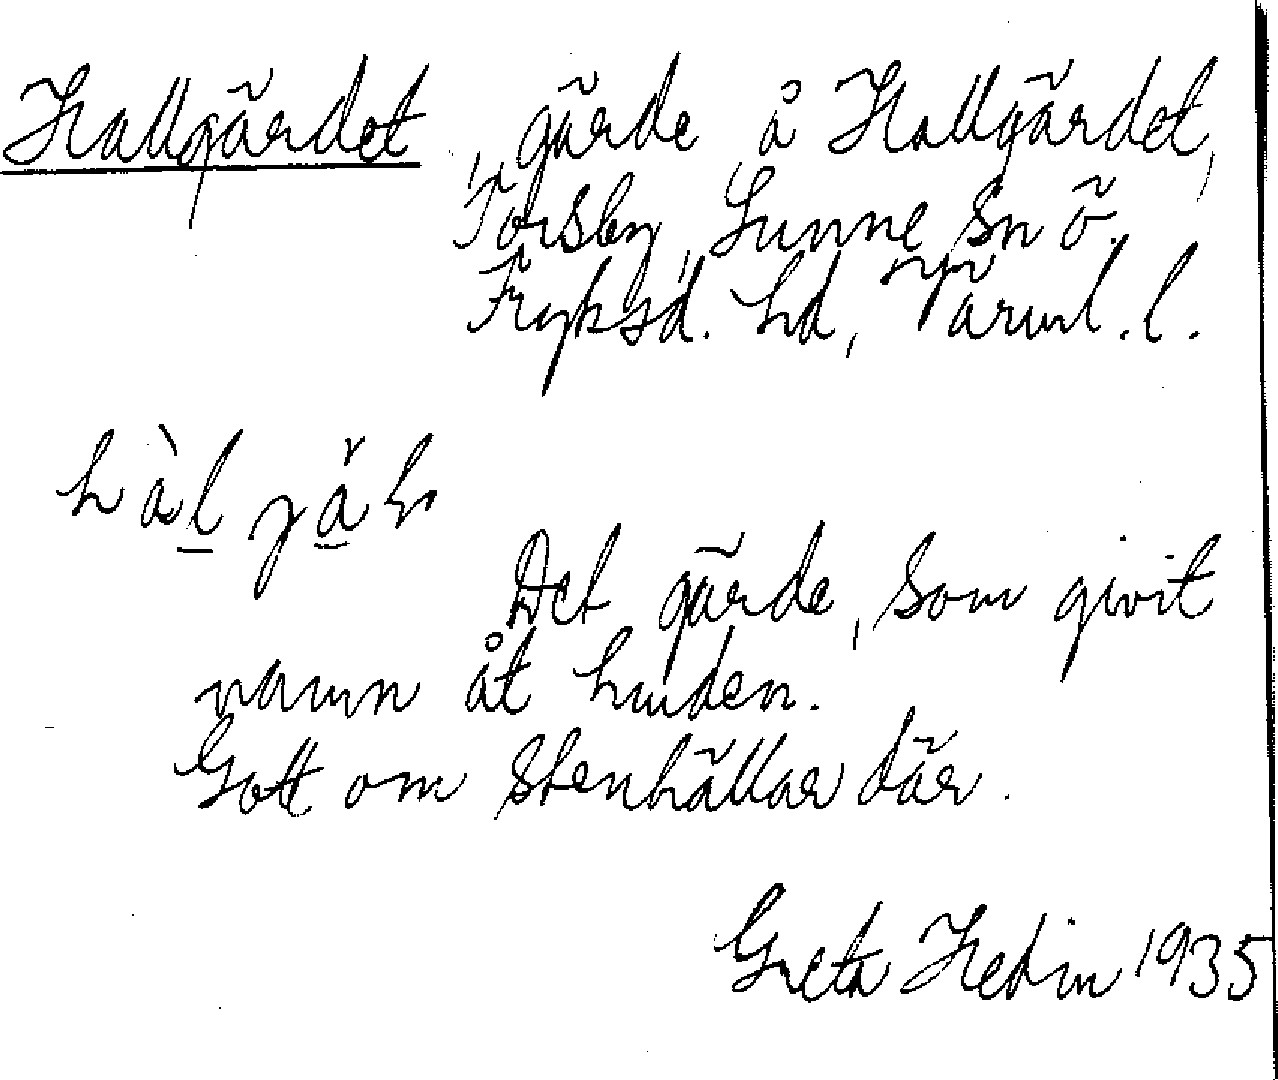 Hallgärdet, gärde å Hallgärdet,
Torsby, Sunne sn ö.
Fryksd. hd, Värml. l.
Det gärde, som givit
namn åt
Gott om stenhällar där.
Greta Hedin 1935